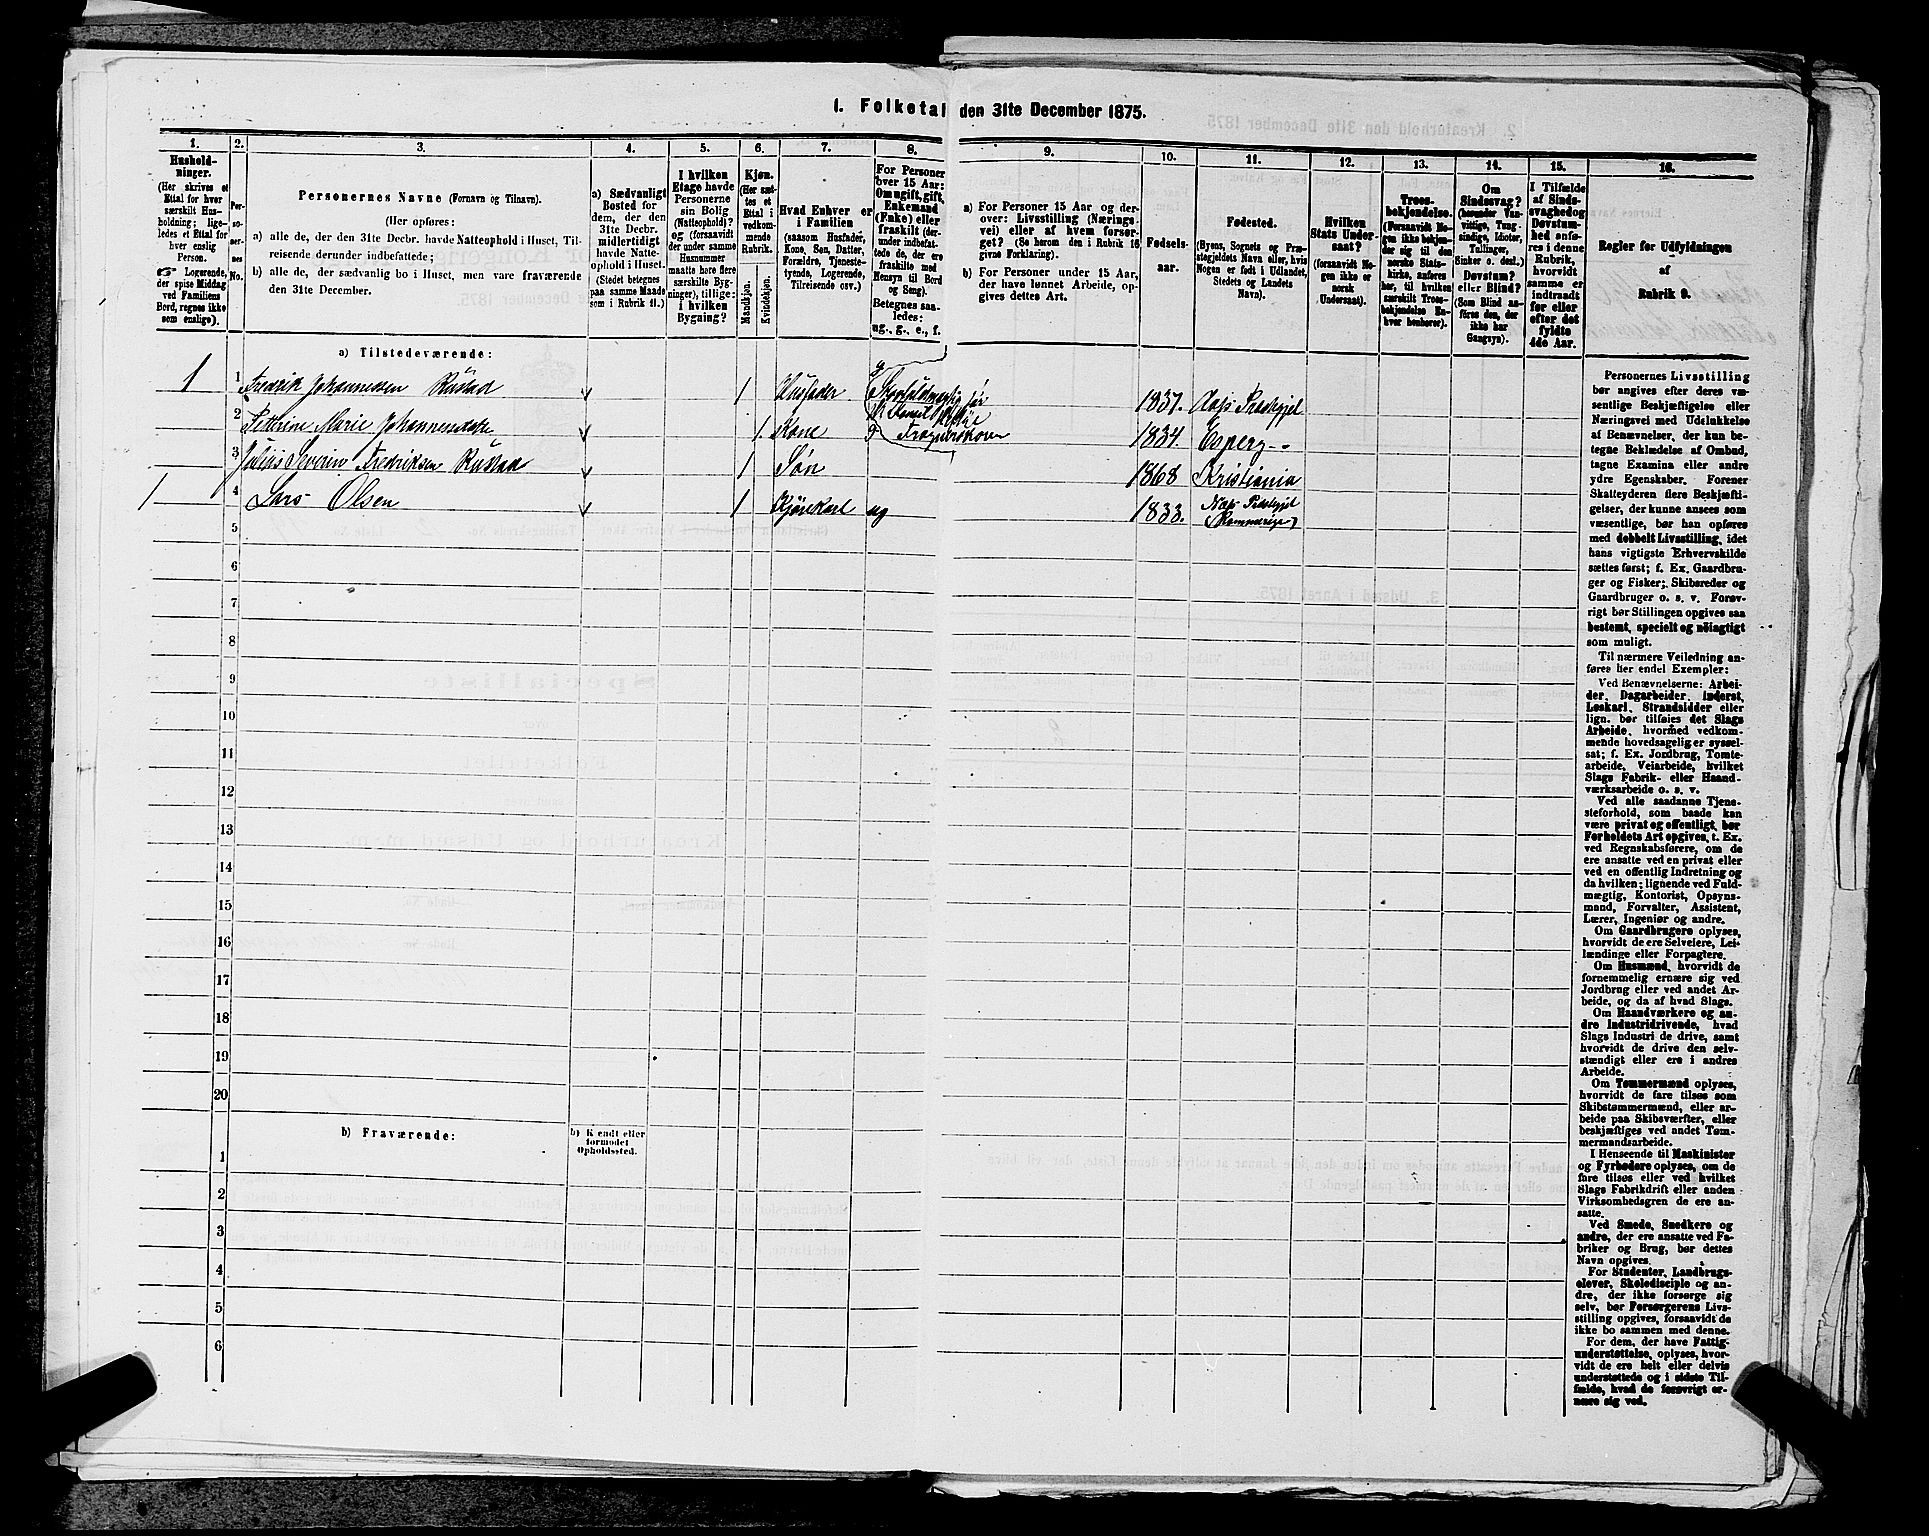 1. Folketal den 31te December 1875.
1.
Hushold-
ninger.
(Her skrives et
Ettal for hver
særskilt Hus-
holdning; lige-
ledes et Ettal for
hver enslig
Person.
☞ Logerende,
der spise Middag
ved Familiens
Bord, regnes ikke
som enslige).
2.
Per-
so-
ner-
nes
No.
3.
Personernes Navne (Fornavn og Tilnavn).
(Her opføres:
a) alle de, der den 31te Decbr. havde Natteophold i Huset, Til-
reisende derunder indbefattede;
b) alle de, der sædvanlig bo i Huset, men vare fraværende
den 31te December.
4.
a) Sædvanligt
Bosted for
dem, der den
31te Decbr.
midlertidigt
havde Natte-
ophold i Huset.
(Stedet betegnes
paa samme Maade
som i Rubrik 11.)
5.
I hvilken
Etage havde
Personerne
sin Bolig
(Natteophold)?
og (forsaavidt
der under samme
Husnummer
maatte høre flere
særskilte Byg-
ninger), tillige:
i hvilken
Bygning?
6.
Kjøn.
(Her sæt-
tes et
Ettal i
vedkom-
mende
Rubrik.
Mandkjøn.
Kvindekjøn.
7.
Hvad Enhver er
i Familien
(saasom Husfader,
Kone, Søn, Datter,
Forældre, Tjeneste-
tyende, Logerende,
Tilreisende osv.)
8.
For Personer
over 15 Aar:
Om ugift, gift,
Enkemand
(Enke) eller
fraskilt (der-
under indbefat-
tede de, der ere
fraskilte med
Hensyn til Bord
og Seng).
Betegnes saa-
ledes:
ug., g., e., f.
9.
a) For Personer 15 Aar og der-
over: Livsstilling (Nærings-
vei) eller af hvem forsør-
get? (Se herom den i Rubrik 16
givne Forklaring).
b) For Personer under 15 Aar,
der have lønnet Arbeide, op-
gives dettes Art.
10.
Fødsels-
aar.
11.
Fødested.
(Byens, Sognets og Præ-
stegjeldets Navn eller, hvis
Nogen er født i Udlandet,
Stedets og Landets
Navn).
12.
Hvilken
Stats Under-
saat?
(forsaavidt No-
gen ikke er
norsk
Undersaat).
13.
Troes-
bekjendelse.
(Forsaavidt No-
gen ikke bekjen-
der sig til den
norske Stats-
kirke, anføres
her, til hvilken
særskilt Troes-
bekjendelse En-
hver henhører).
14.
Om
Sindssvag?
(herunder Van-
vittige, Tung-
sindige, Idioter,
Tullinger,
Sinker o. desl.)
Døvstum?
eller Blind?
(Som Blind an-
føres den, der
ikke har
Gangsyn).
15.
I Tilfælde
af Sinds-
svaghed og
Døvstum-
hed anfø-
res i denne
Rubrik,
hvorvidt
samme er
indtraadt
før eller
efter det
fyldte
4de Aar.
16.
Regler for Udfyldningen
af
Rubrik 9.
a) Tilstedeværende:
1 1 Fredrik Johannessen Rustad 1 Husfader g 1837. Præstgjel
2 Petterine Marie Johannesdatter 1. Kone g 1834. Esperg
3 Julius Severin Fredriksen Rustad 1 Søn 1868 Kristiania
1 4 Lars Olsen 1 Kjørekarl ug 1833. Næs Præstgjel
(Rommerige)
5
6
7
8
9
10
11
12
13
14
15
16
17
18
19
20
b) Fraværende:
b) Kjendt eller
formodet
Opholdssted.
1
2
3
4
5
6
Personernes Livsstilling
bør angives efter deres væ-
sentlige Beskjæftigelse eller
Næringsvei med Udelukkelse
af Benævnelser, der kun be-
tegne Beklædelse af Ombud,
tagne Examina eller andre
ydre Egenskaber. Forener
Skatteyderen flere Beskjæfti-
gelser, der kunne ansees som
væsentlige, bør han opføres
med dobbelt Livsstilling, idet
hans vigtigste Erhvervskilde
sættes først; f. Ex. Gaardbru-
ger og Fisker; Skibsreder og
Gaardbruger o. s. v. Forøv-
rigt bør Stillingen opgives saa
bestemt, specielt og nøiagtigt
som muligt.
Til nærmere Veiledning an-
føres her endel Exempler:
Ved Benævnelserne: Arbei-
der, Dagarbeider, Inderst,
Løskarl, Strandsidder eller
lign. bør tilføies det Slags
Arbeide, hvormed vedkom-
mende hovedsagelig er syssel-
sat; f. Ex. Jordbrug, Tomte-
arbeide, Veiarbeide, hvilket
Slags Fabrik- eller Haand-
værksarbeide o. s. v.
Ved alle saadanne Tjene-
steforhold, som baade kan
være privat og offentligt, bør
Forholdets Art opgives, t. Ex.
ved Regnskabsførere, om de
ere ansatte ved en privat eller
ved en offentlig Indretning og
da hvilken; lignende ved Fuld-
mægtig, Kontorist, Opsyns-
mand, Forvalter, Assistent,
Lærer, Ingeniør og andre.
Om Gaardbrugere oplyses,
hvorvidt de ere Selveiere, Lei-
lændinge eller Forpagtere.
Om Husmænd, hvorvidt de
fornemmelig ernære sig ved
Jordbrug eller ved andet Ar-
beide, og da af hvad Slags.
Om Haandværkere og an-
dre Industridrivende, hvad
Slags Industri de drive, samt
hvorvidt de drive den selv-
stændigt eller ere i andres
Arbeide.
Om Tømmermænd oplyses,
hvorvidt de fare tilsøs som
Skibstømmermænd, eller ar-
beide paa Skibsværfter, eller
beskjæftiges ved andet Tøm-
mermandsarbeide.
I Henseende til Maskinister
og Fyrbødere oplyses, om de
fare tilsøs eller ved hvilket
Slags Fabrikdrift eller anden
Virksomhedsgren de ere an-
satte.
Ved Smede, Snedkere og
andre, der ere ansatte ved Fa-
briker og Brug, bør dettes
Navn opgives.
For Studenter, Landbrugs-
elever, Skoledisciple og an-
dre, der ikke forsørge sig
selv, bør Forsørgerens Livs-
stilling opgives, forsaavidt de
ikke bo sammen med denne.
For dem, der have Fattig-
understøttelse, oplyses, hvor-
vidt de ere helt eller delvis
understøttede og i sidste Til-
fælde, hvad de forøvrigt er-
nære sig ved.